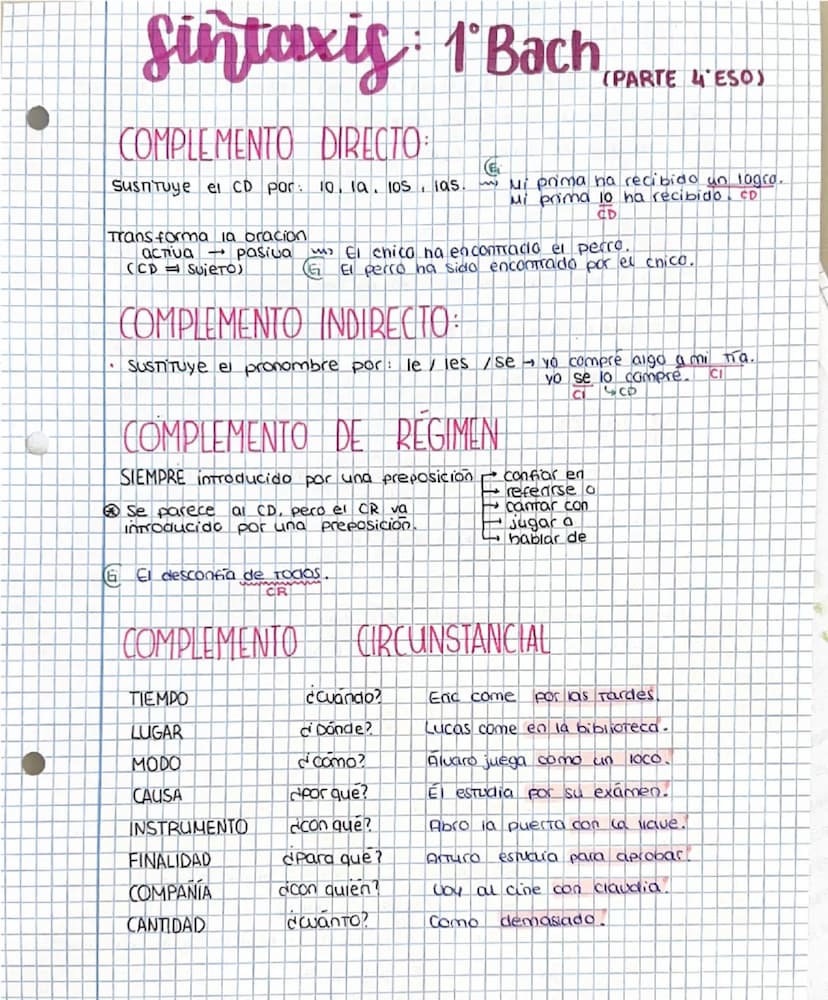 Sintaxis: 1º Bach
(PARTE 4º ESO)
COMPLEMENTO DIRECTO:
Sustituye el CD por: lo, la, los, las. E Mi prima ha recibido un logro.
CD
Mi prima lo ha recibido.
CD
Transforma la oración
activa → pasiva El chico ha encontrado el perro.
(CD ⇒ Sujeto) E El perro ha sido encontrado por el chico.
COMPLEMENTO INDIRECTO:
· Sustituye el pronombre por: le / les / se → yo compré algo a mi tía.
CI
yo se lo compré.
CI ↳ CD
COMPLEMENTO DE RÉGIMEN
SIEMPRE introducido por una preposición → confiar en
→ referirse a
* Se parece al CD, pero el CR va → cantar con
introducido por una preposición. → jugar a
→ hablar de
E El desconfía de todos.
CR
COMPLEMENTO CIRCUNSTANCIAL
TIEMPO ¿Cuándo? Eric come por las tardes.
LUGAR ¿Dónde? Lucas come en la biblioteca.
MODO ¿cómo? Álvaro juega como un loco.
CAUSA ¿por qué? Él estudia por su exámen.
INSTRUMENTO ¿con qué? Abro la puerta con la llave.
FINALIDAD ¿Para qué? Arturo estudia para aprobar.
COMPAÑÍA ¿con quién? Voy al cine con Claudia.
CANTIDAD ¿cuánto? Como demasiado.